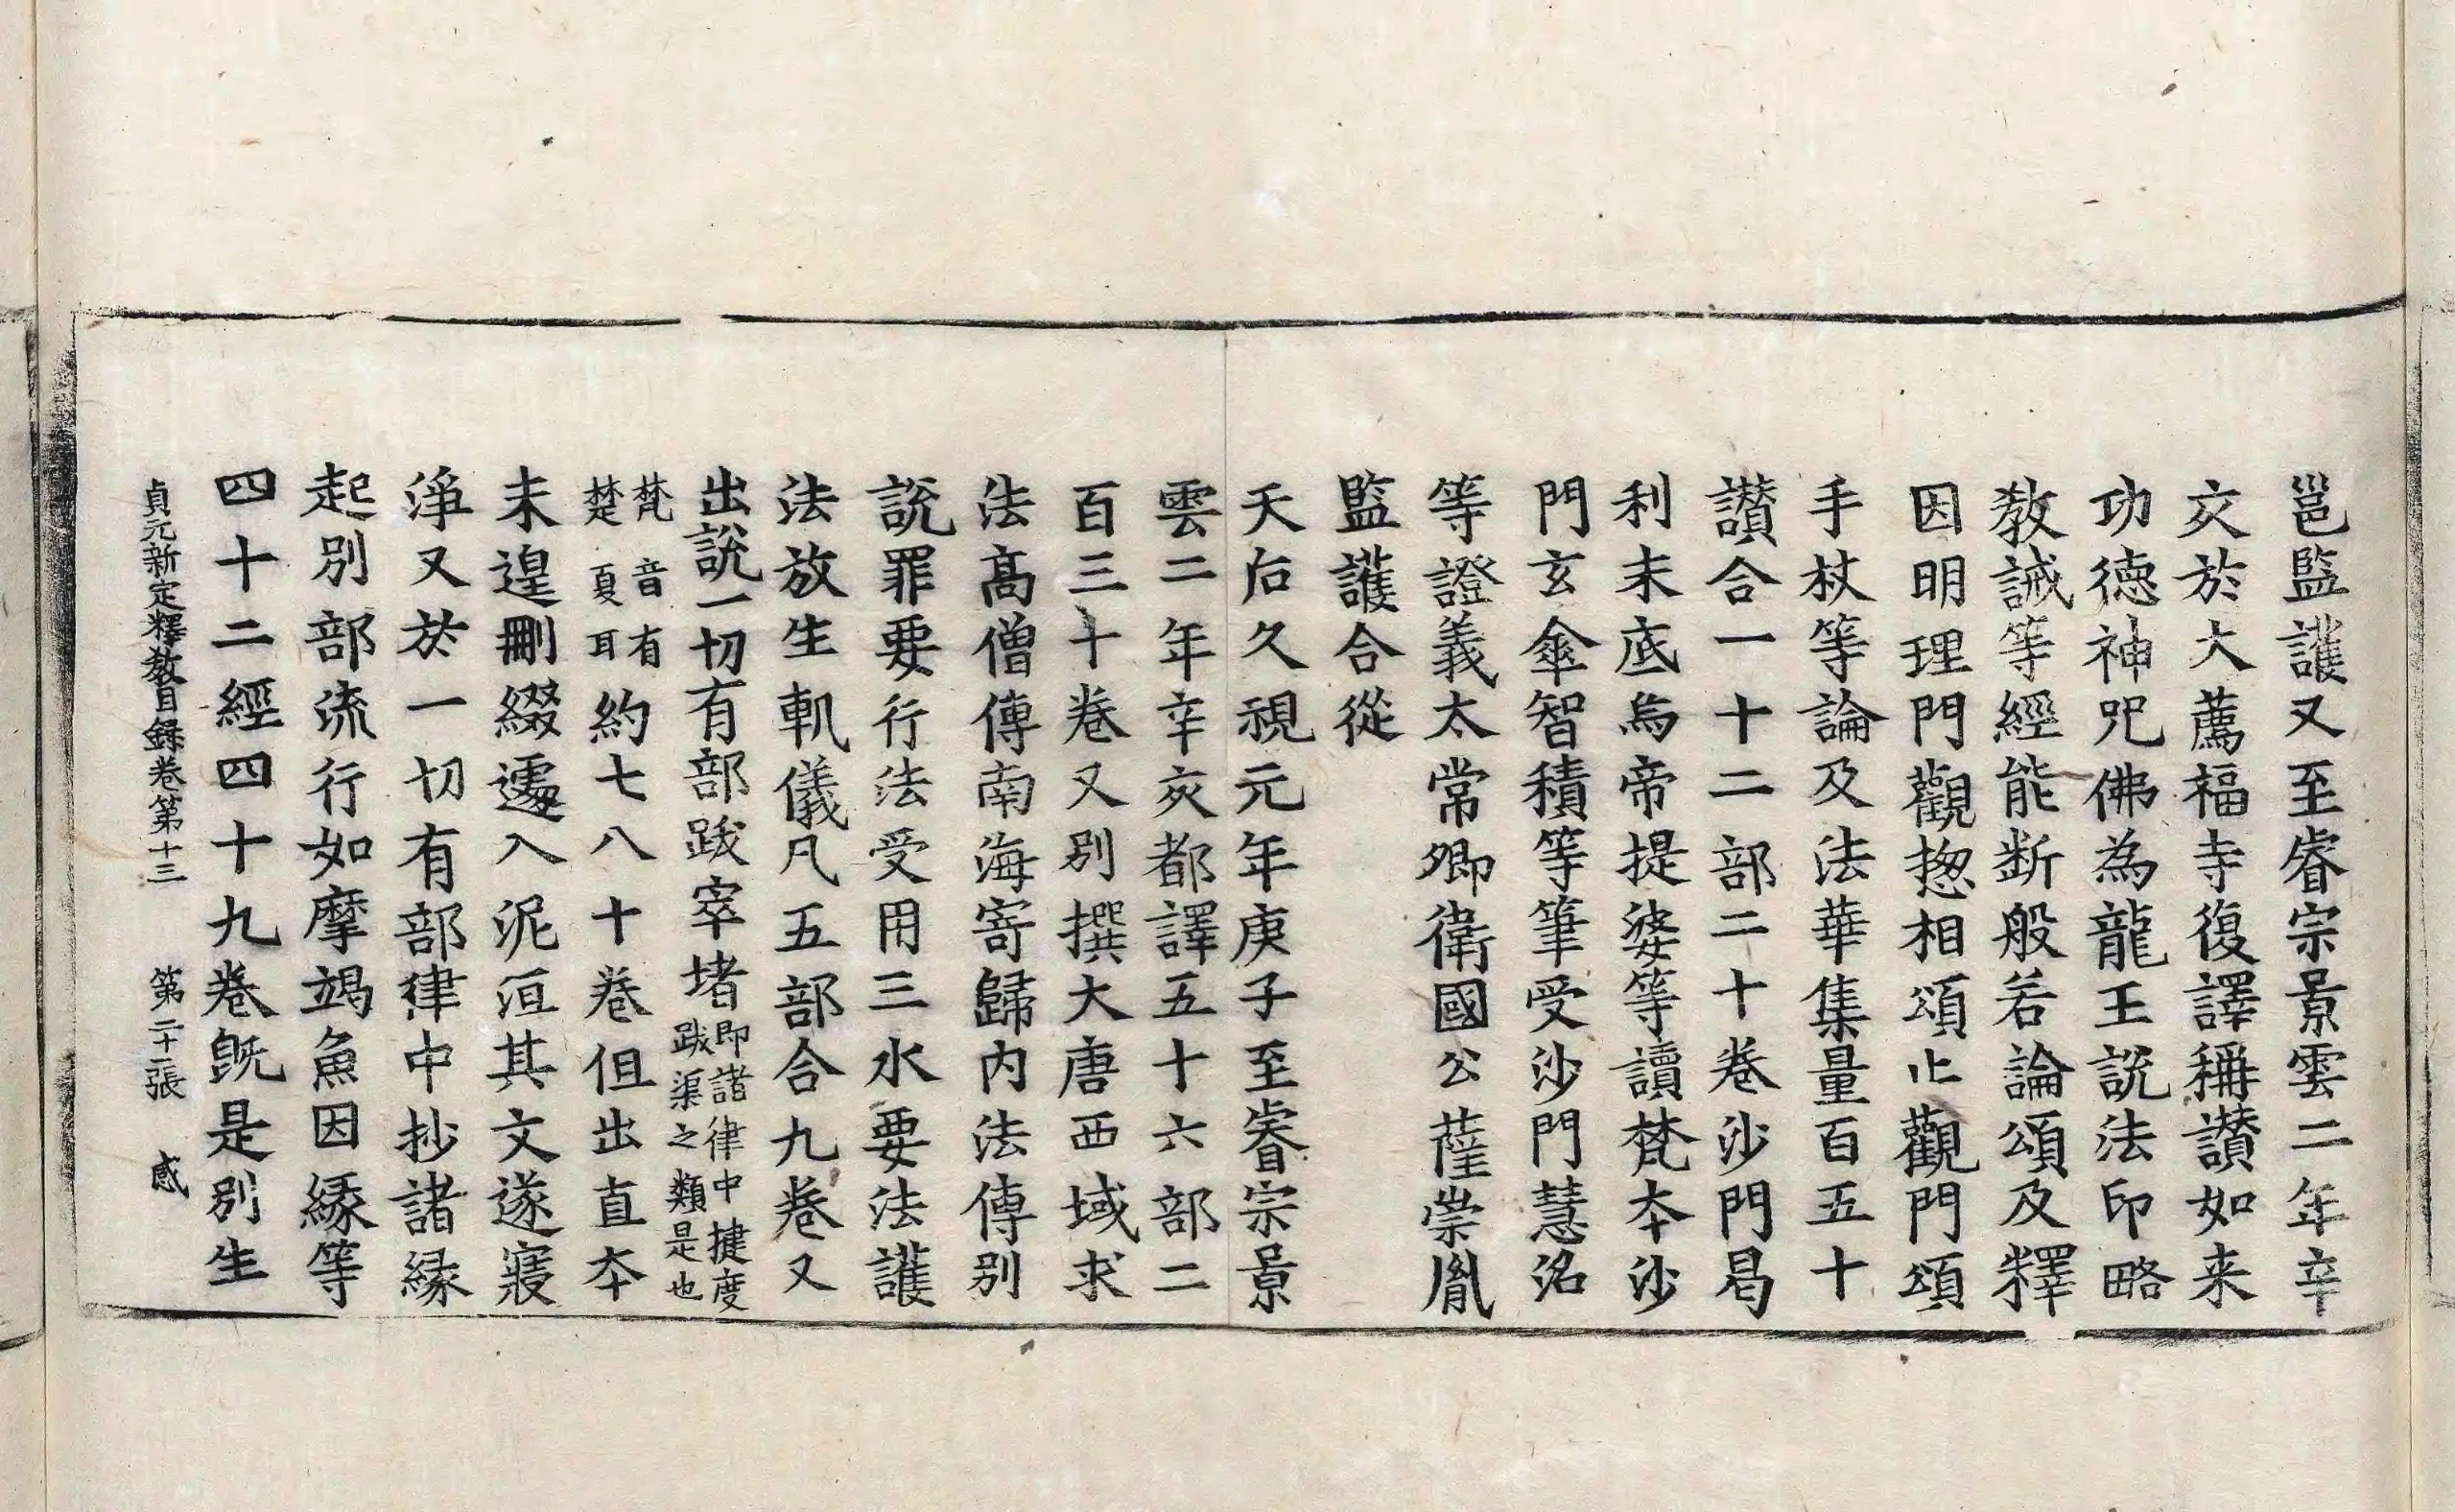 邕監護又至睿宗景雲二年辛
亥於大薦福寺復譯稱讃如来
功德神呪佛為龍王說法印略
教誡等經能断般若論頌及釋
因明理門觀揔相頌止觀門頌
手杖等論及法華集量百五十
讃合一十二部二十卷沙門曷
利末底烏帝提婆等讀梵夲沙
門玄傘智積等筆受沙門慧沼
等證義太常卿衛國公薩崇胤
監護合從
天后久視元年庚子至睿宗景
雲二年辛亥都譯五十六部二
百三十卷又別撰大唐西域求
法髙僧傳南海寄歸內法傳別
說罪要行法受用三水要法護
法放生軌儀凡五部合九卷又
出說一切有部跋窣堵即諸律中揵度跋渠之類是也
梵音有楚夏耳約七八十卷但出直夲
未遑刪綴遽入泥洹其文遂寢
淨又於一切有部律中抄諸緣
起別部流行如摩竭魚因緣等
四十二經四十九卷旣是別生
貞元新定釋教目録卷第十三 第二十一張 感